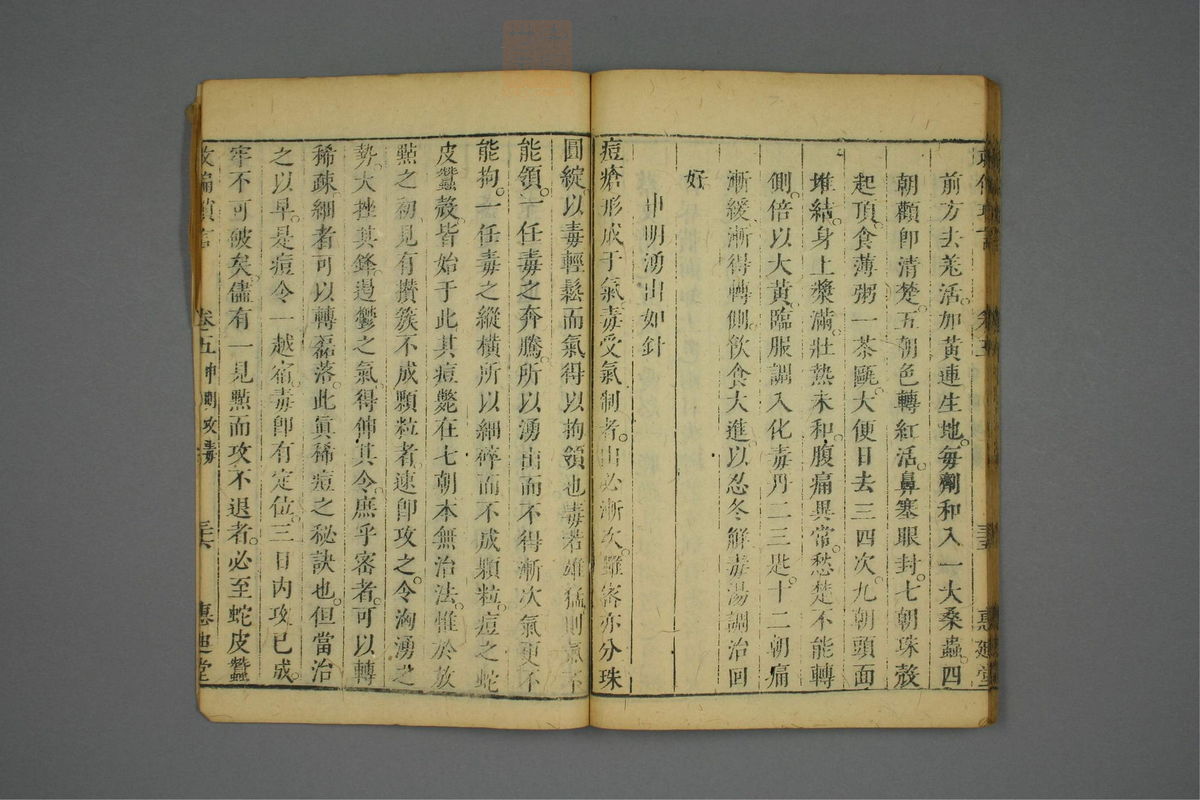 前方去羗活。加黃連生地。每劑和入一大桑蟲。四
朝觀卽清楚。五朝色轉紅活。鼻塞眼封。七朝珠殼
起頂。食薄粥一茶甌。大便日去三四次。九朝頭面
堆結。身上漿滿。壯熱未和。腹痛異常。愁楚不能轉
側。倍以大黃。臨服調入化毒丹二三匙。十二朝痛
漸緩。漸得轉側。飲食大進。以忍冬解毒湯調治回
好
申明湧出如針
痘瘡形成于氣。毒受氣制者。出必漸次。雖密亦分珠
圓綻。以毒輕鬆而氣得以拘領也。毒若雄猛則氣不
能領。一任毒之奔騰。所以湧出而不得漸次。氣更不
能拘。一任毒之縱橫。所以細碎而不成顆粒。痘之蛇
皮蠶殼。皆始于此。其痘斃在七朝。本無治法。惟於放
㸃之初。見有攢簇不成顆粒者。速卽攻之。令洶湧之
勢。大挫其鋒。遏鬱之氣。得伸其令。庶乎密者。可以轉
稀疎。細者可以轉磊落。此眞稀痘之秘訣也。但當治
之以早。是痘令一越宿。毒卽有定位。三日內攻已成。
牢不可破矣。儘有一見㸃而攻不退者。必至蛇皮蠶
卷五 申明攻毒
三六
惠迪堂